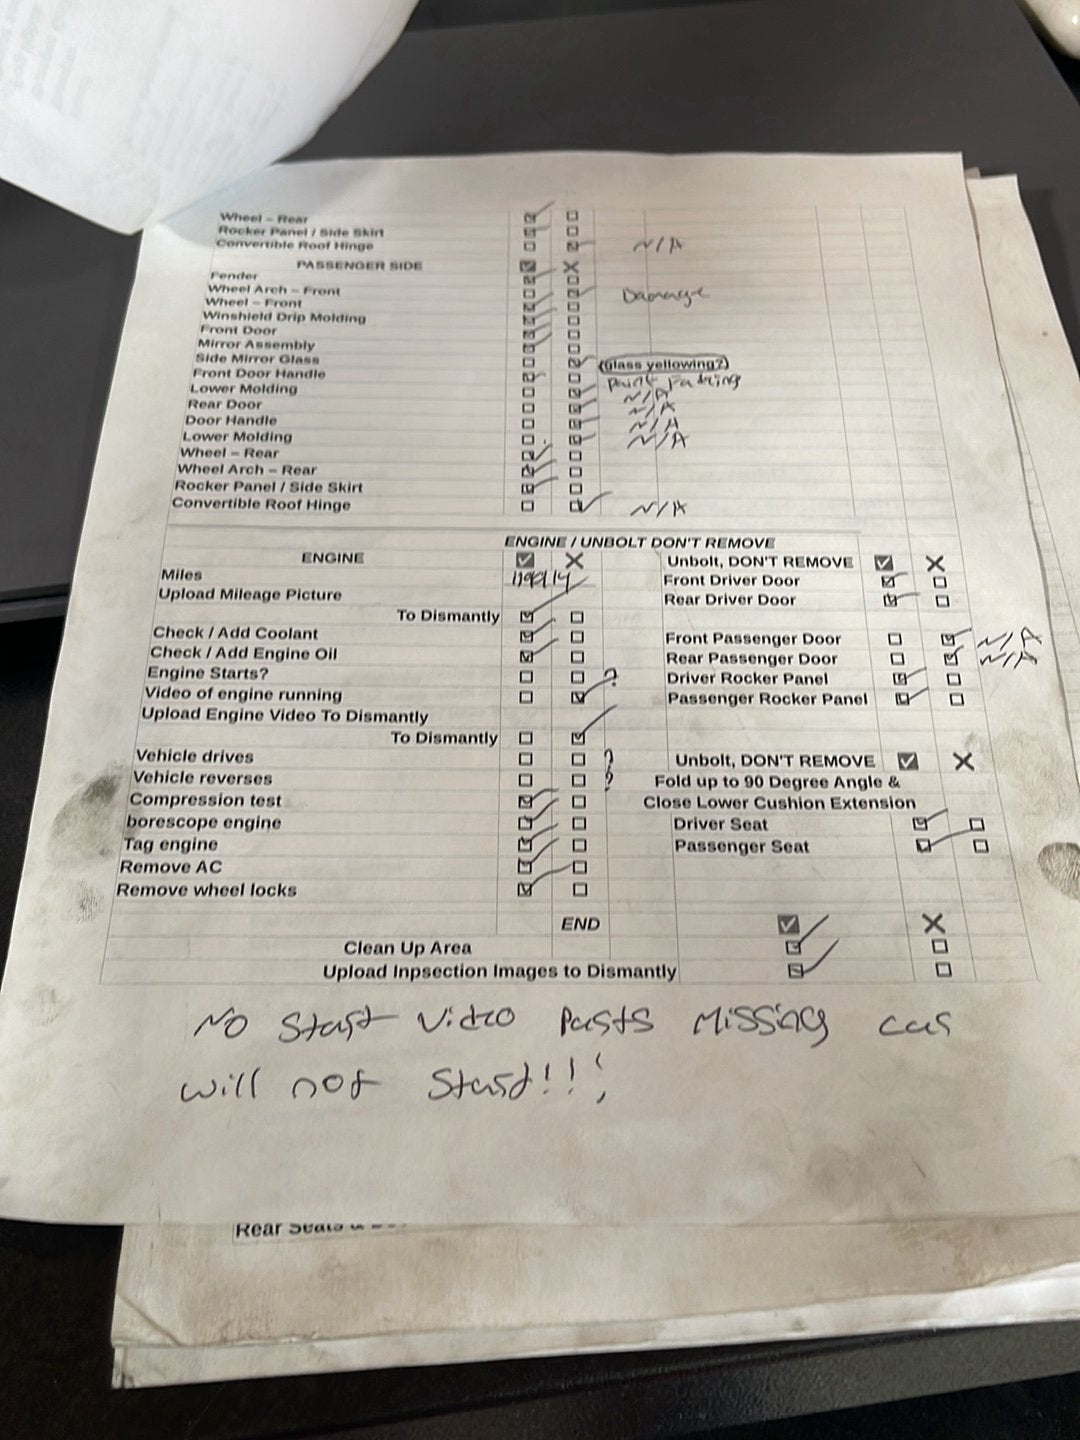 Wheel – Rear ☑ ☐
Rocker Panel / Side Skirt ☑ ☐
Convertible Roof Hinge ☐ ☑ N/A
PASSENGER SIDE ☑ ✕
Fender ☑ ☐
Wheel Arch – Front ☐ ☑ Damage
Wheel – Front ☑ ☐
Winshield Drip Molding ☑ ☐
Front Door ☑ ☐
Mirror Assembly ☑ ☐
Side Mirror Glass ☐ ☑ (glass yellowing?)
Front Door Handle ☑ ☐ Paint Fading
Lower Molding ☐ ☑ N/A
Rear Door ☐ ☑ N/A
Door Handle ☐ ☑ N/A
Lower Molding ☐ ☑ N/A
Wheel – Rear ☑ ☐
Wheel Arch – Rear ☑ ☐
Rocker Panel / Side Skirt ☑ ☐
Convertible Roof Hinge ☐ ☑ N/A
ENGINE / UNBOLT DON'T REMOVE
ENGINE ☑ ✕
Miles
Upload Mileage Picture
To Dismantly ☑ ☐
Check / Add Coolant ☑ ☐
Check / Add Engine Oil ☑ ☐
Engine Starts? ☐ ☐ ?
Video of engine running ☐ ☑
Upload Engine Video To Dismantly
To Dismantly ☐ ☑
Vehicle drives ☐ ☐ ?
Vehicle reverses ☐ ☐ ?
Compression test ☑ ☐
borescope engine ☑ ☐
Tag engine ☑ ☐
Remove AC ☑ ☐
Remove wheel locks ☑ ☐
Unbolt, DON'T REMOVE ☑ ✕
Front Driver Door ☑ ☐
Rear Driver Door ☑ ☐
Front Passenger Door ☐ ☑ N/A
Rear Passenger Door ☐ ☑ N/A
Driver Rocker Panel ☑ ☐
Passenger Rocker Panel ☑ ☐
Unbolt, DON'T REMOVE ☑ ✕
Fold up to 90 Degree Angle &
Close Lower Cushion Extension
Driver Seat ☑ ☐
Passenger Seat ☑ ☐
END ☑ ✕
Clean Up Area ☑ ☐
Upload Inpsection Images to Dismantly ☑ ☐
No Start Video Parts Missing car
will not Start!!!
Rear Seats &